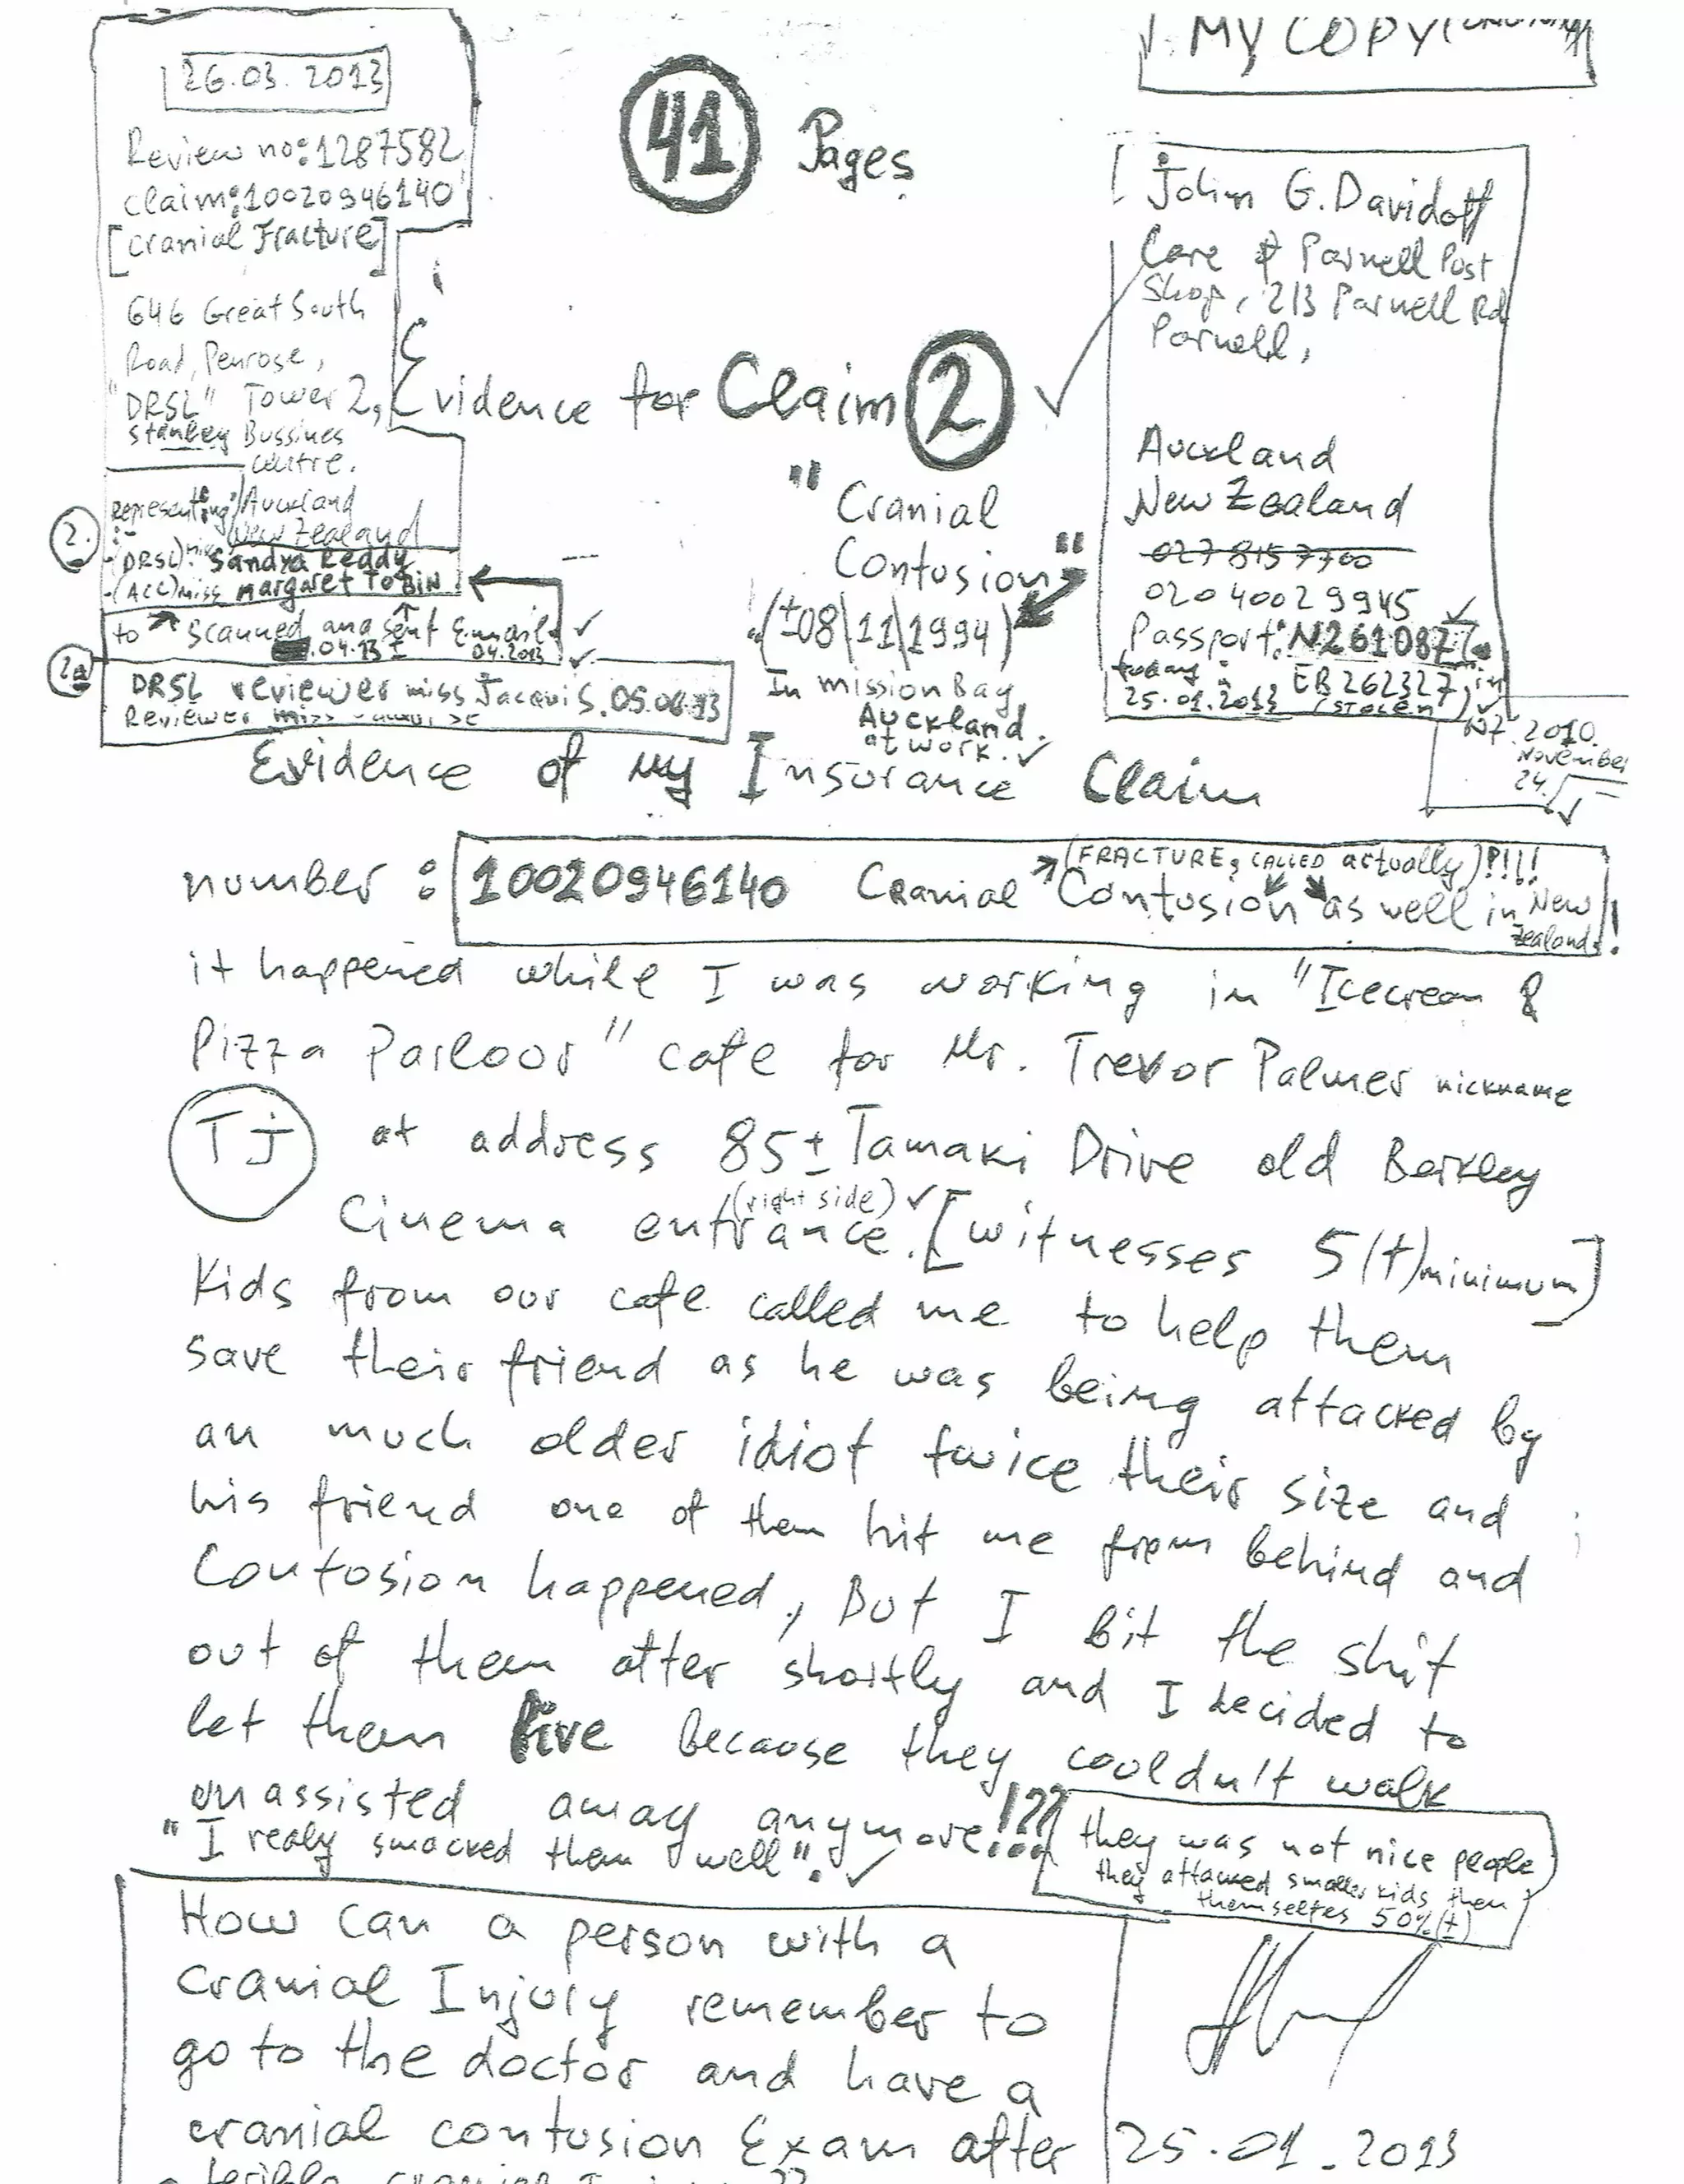 MY COPY
26.03.2013
Review no: 1287582
claim: 10020946140
[Cranial Fracture]
646 Great South
Road, Penrose,
"DRSL" Tower 2,
Stanley Bussines
centre.
Auckland
New Zealand
2.
Representing
(DRSL) miss Sandya Reddy
-(ACC) miss margaret ToBiN
to scanned and sent Email ✓
.04.13 ± 04.2013 ✓
2a
DRSL reviewer miss Jacqui S. 05.06.13
Reviewer miss
41 Pages
Evidence for Claim 2 ✓
"Cranial
Contusion"
(±08\11\1994)
In mission Bay
Auckland.
at work. ✓
John G. Davidoff
Care of Parnell Post
Shop, 213 Parnell Rd
Parnell,
Auckland
New Zealand
027 815 7700
020 400 29945 ✓
Passport: N261087
today:
25.01.2013
EB262327, in
(STOLEN)
NZ 2010.
November
24.
Evidence of My Insurance Claim
number : 10020946140 Cranial Contusion as well in New
Zealand. !
(FRACTURE, CALLED actually)?!!!
it happened while I was working in "Icecream &
Pizza Parloor" cafe for Mr. Trevor Palmer nickname
TJ at address 85± Tamaki Drive old Berkley
(right side) ✓
Cinema entrance. [witnesses 5(±)minimum]
Kids from our cafe called me to help them
save their friend as he was being attacked by
an much older idiot twice their size and
his friend one of them hit me from behind and
Contusion happened, But I bit the shit
out of them after shortly and I decided to
let them live because they couldn't walk
unassisted away anymore!??...
"I realy smacked them well". ✓
they was not nice people
they attacked smaller kids then
themselfes 50%(±)
How can a person with a
cranial Injury remember to
go to the doctor and have a
cranial contusion Exam after
a terible cranial
25.01.2013